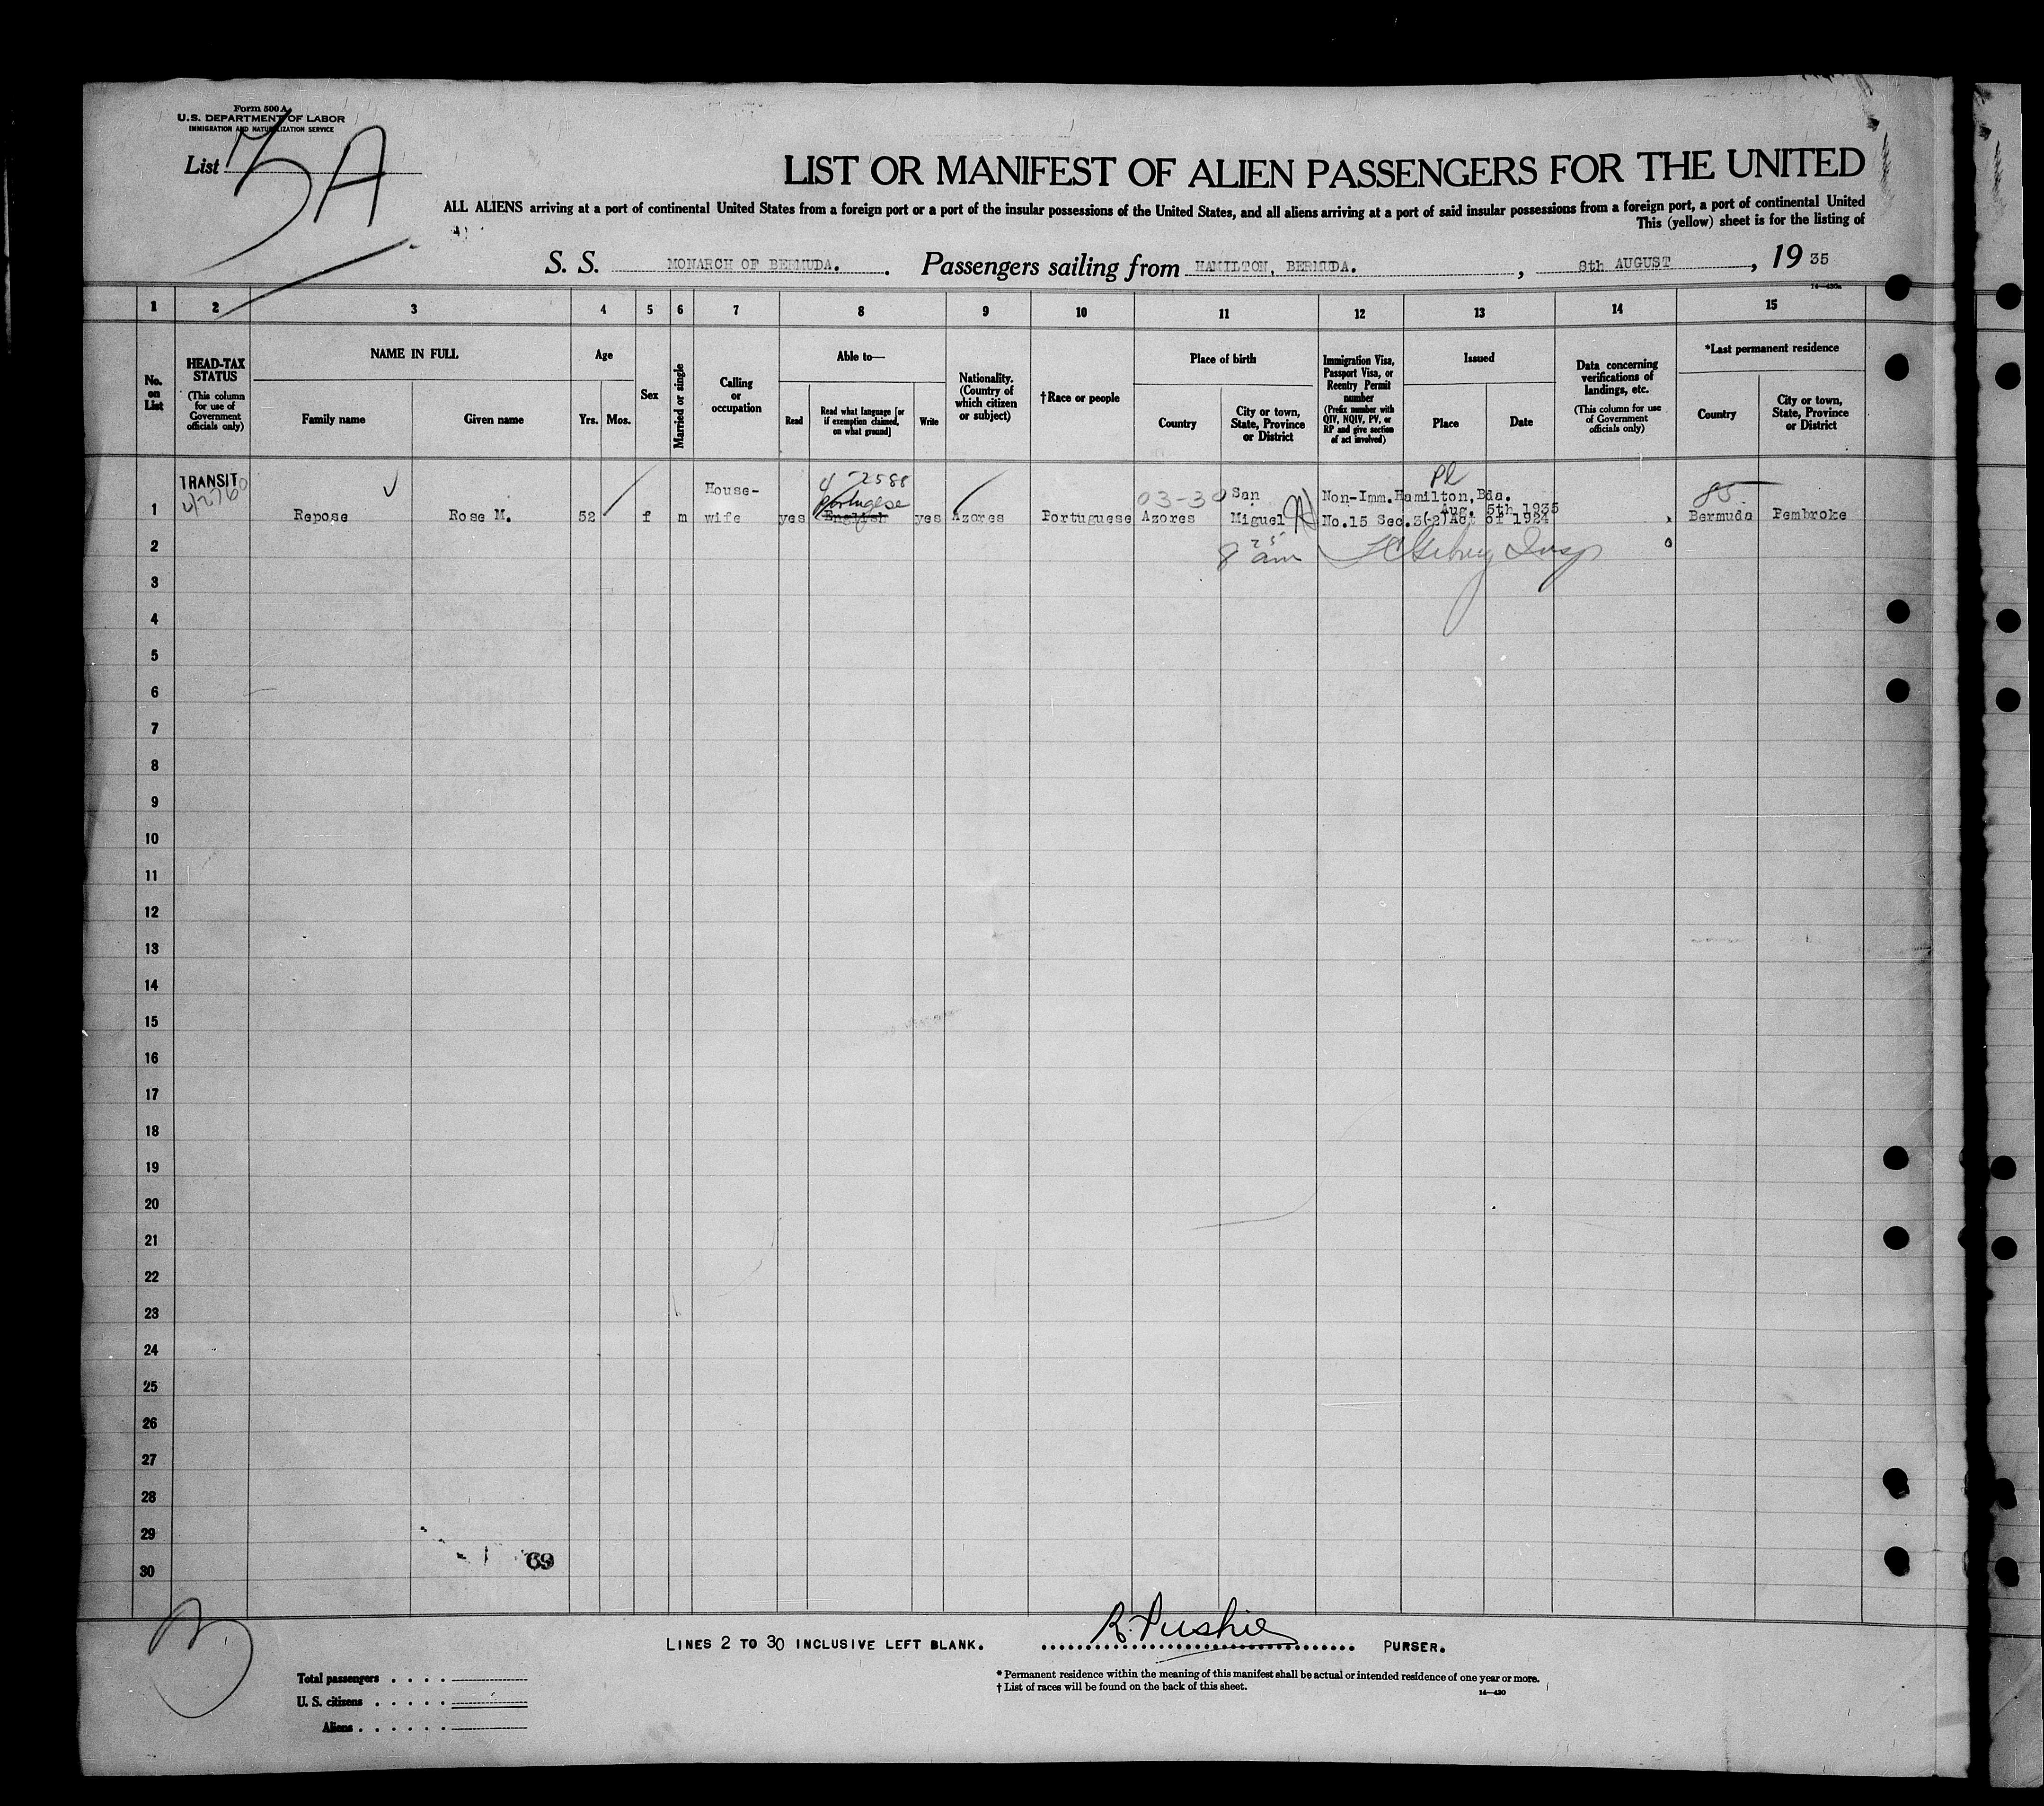 Form 500 A
U.S. DEPARTMENT OF LABOR
IMMIGRATION AND NATURALIZATION SERVICE
List 5A
LIST OR MANIFEST OF ALIEN PASSENGERS FOR THE UNITED
ALL ALIENS arriving at a port of continental United States from a foreign port or a port of the insular possessions of the United States, and all aliens arriving at a port of said insular possessions from a foreign port, a port of continental United
This (yellow) sheet is for the listing of
S. S. MONARCH OF BERMUDA. Passengers sailing from HAMILTON, BERMUDA. , 8th AUGUST , 19 35
14—430a
1 2 3 4 5 6 7 8 9 10 11 12 13 14 15
No. on List
HEAD-TAX STATUS
(This column for use of Government officials only)
NAME IN FULL
Family name
Given name
Age
Yrs.
Mos.
Sex
Married or single
Calling or occupation
Able to—
Read
Read what language [or if exemption claimed, on what ground]
Write
Nationality. (Country of which citizen or subject)
†Race or people
Place of birth
Country
City or town, State, Province or District
Immigration Visa, Passport Visa, or Reentry Permit number
(Prefix number with QIV, NQIV, PV, or RP and give section of act involved)
Issued
Place
Date
Data concerning verifications of landings, etc.
(This column for use of Government officials only)
*Last permanent residence
Country
City or town, State, Province or District
TRANSIT
House-
4-2588
Portugese
03-30
San
Non-Imm. Hamilton, Bda.
85
Aug. 5th 1935
1 Repose Rose M. 52 f m wife yes English yes Azores Portuguese Azores Miguel No.15 Sec.3(2)Act of 1924 Bermuda Pembroke
2
8 25 am
3
4
5
6
7
8
9
10
11
12
13
14
15
16
17
18
19
20
21
22
23
24
25
26
27
28
29
30
69
LINES 2 TO 30 INCLUSIVE LEFT BLANK. R. Pushie PURSER.
Total passengers
U. S. citizens
Aliens
* Permanent residence within the meaning of this manifest shall be actual or intended residence of one year or more.
† List of races will be found on the back of this sheet.
14—430